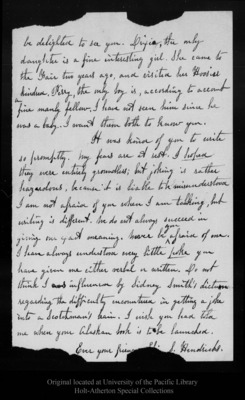 be delighted to see you. Lizzie, the only
daughter is a fine interesting girl. She came to
the Fair two years ago, and visited her Hoosier
kindred. Perry, the only boy is, according to account
fine manly fellow, I have not seen him since he
was a baby. I want them both to know you.
It was kind of you to write
so promptly. My fears are at rest. I hoped
they were entirely groundless; but joking is rather
hazardous, because it is liable to be misunderstood
I am not afraid of you when I am talking, but
writing is different. We do not always succeed in
giving our exact meaning. Never be afraid of me.
I have always understood every little joke you
have given me either verbal or written. Do not
think I was influenced by Sidney Smith's dictum
regarding the difficulty encountered in getting a joke
into a Scotchman's brain. I wish you had told
me when your Alaskan book is to be launched.
Ever your friend A. Hendricks.
Original located at University of the Pacific Library
Holt-Atherton Special Collections